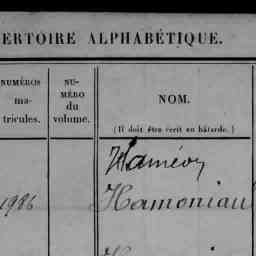 ERTOIRE ALPHABÉTIQUE.
NUMÉROS
ma-
tricules.
NU-
MÉRO
du
volume.
NOM.
(Il doit être écrit en bâtarde.)
Hamévy
1986 Hamoniau